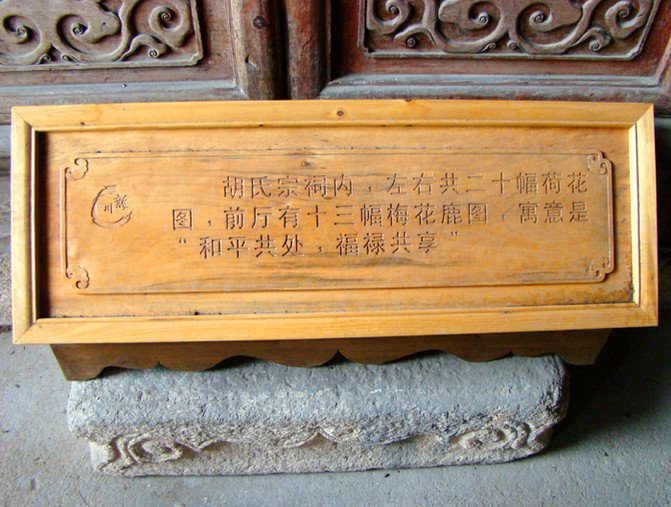 胡氏宗祠内，左右共二十幅荷花
图，前厅有十三幅梅花鹿图，寓意是
“和平共处，福禄共享”